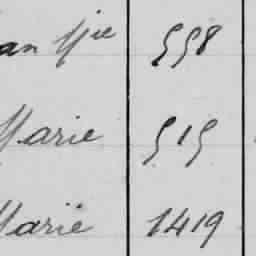 an Mie 558
Marie 515
Marie 1419